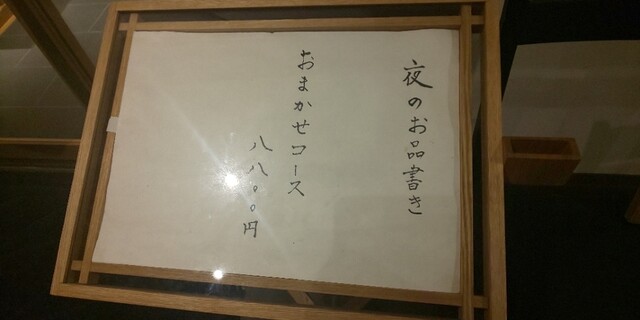 夜のお品書き
おまかせコース
八八〇〇円